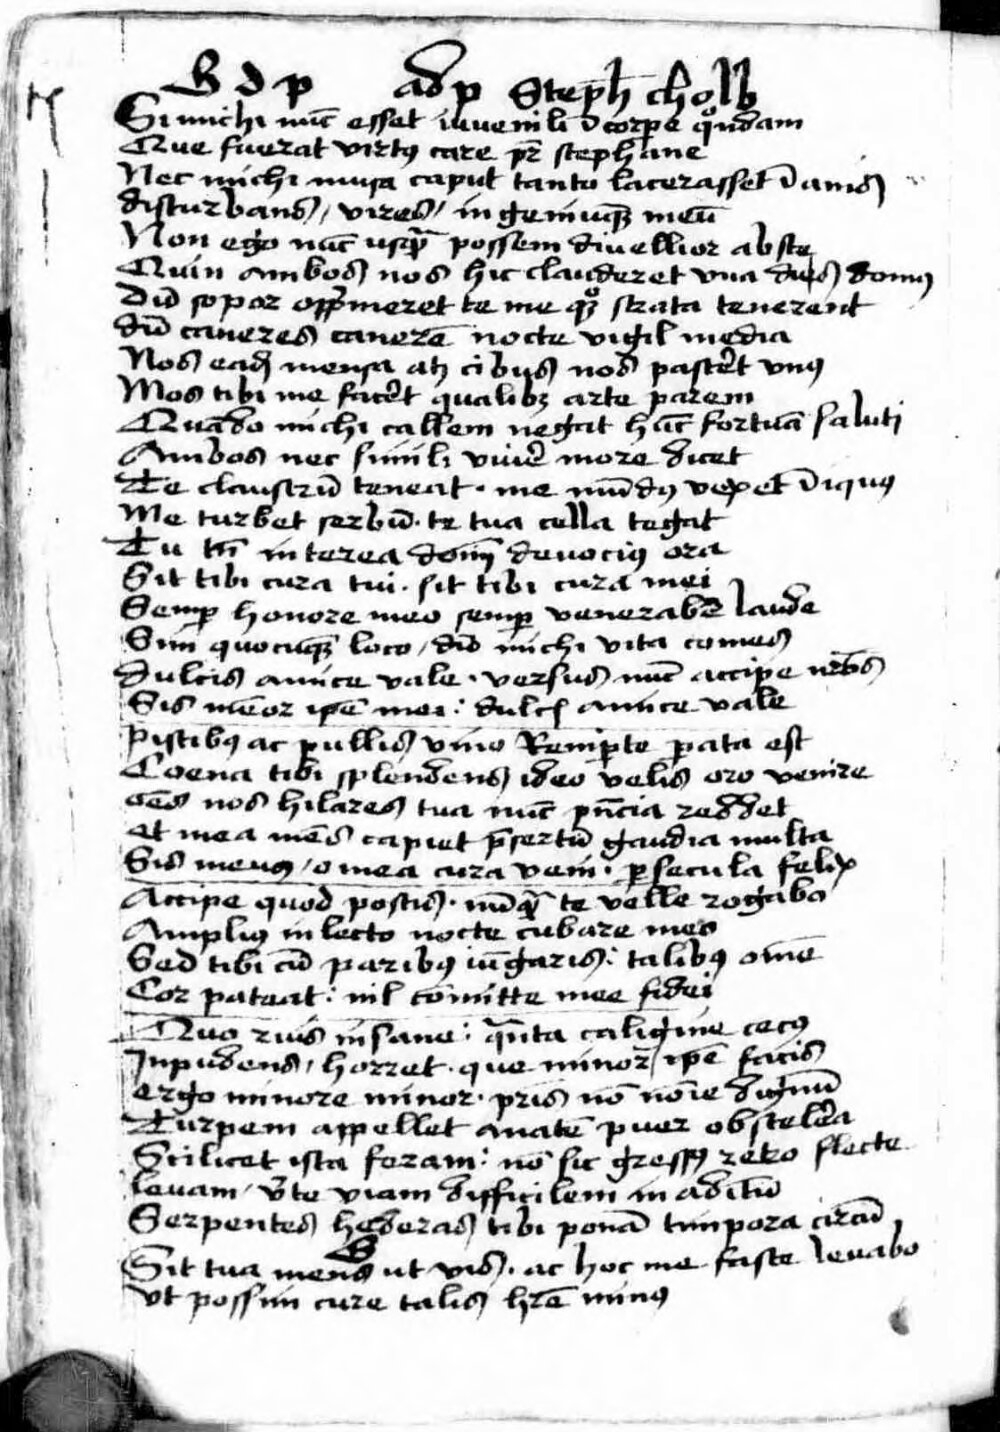 S d p adp Steph cholb
Si michi nūc esset iuvenili ī corpe qͦndam
Que fuerat virtꝰ care pr̄ stephane
Nec michi musa caput tanto lacerasset ī amis
disturbans / vires / ingeniūqꝫ meū
Non ego nūc usqᷓ possem divellior abs te
Quin ambos nos hic clauderet vna dies domꝰ
Dū sopor opp̄meret te me qꝫ strata tenerent
dū caneres canerē nocte vigil media
Nos eadē mensa atqꝫ cibus nos pasceret vnꝰ
Mos tibi me faceret qualibꝫ arte parem
Quādo michi callem negat hāc fortuā saluti
Ambos nec simili viuere more dicet
Te claustrū teneat . me mūdꝰ vexet īiquꝰ
Me turbet serbū . te tua cella tegat
Tu tn̄ interea domī deuociꝰ ora
Sit tibi cura tui . sit tibi cura mei
Semp honore meo semp venerabere laude
Sim quocūqꝫ loco / dū michi vita comes
dulcis amice vale . versus nūc accipe nr̄os
Sis mēor ipē mei : dulcis amice vale
Piscibꝰ ac pullis vino Remi parte parata est
Coena tibi splendens ideo velis oro venire
oēs nos hilares tua nūc pn̄cia reddet
et mea mēs capiet p̄sertū gaudia multa
Sis meus / o mea cura veni . p secula felix
Accipe quod poscis . nūqᷓ te velle rogabo
Ampliꝰ in lecto nocte cubare meo
Sed tibi cū paribꝰ iūgaris : talibꝰ omē
Cor pateat : nil cōmitte mee fidei
Quo ruis insane : qᷓnta caligine cecꝰ
Inpudens / horret . que minor / ipē facis
ergo minore minor . pris nō nōie dignū
Turpem appellet amātē puer obscelera
Scilicet ista feram : nō sic gressꝰ retro flecte
leuam / v̄te viam difficilem in aditū
Serpentes hederas tibi ponā timpora circū
Sit tua mens ut vis . ac hoc me faste leuabo
Vt possim cure talis hr̄e minꝰ